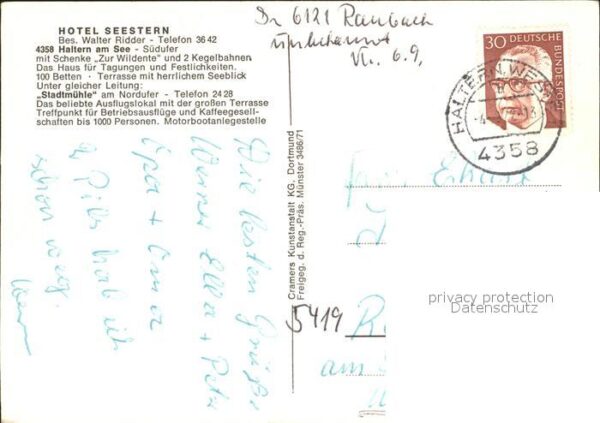 HOTEL SEESTERN
Bes. Walter Ridder - Telefon 36 42
4358 Haltern am See - Südufer
mit Schenke „Zur Wildente" und 2 Kegelbahnen
Das Haus für Tagungen und Festlichkeiten.
100 Betten · Terrasse mit herrlichem Seeblick
Unter gleicher Leitung:
„Stadtmühle" am Nordufer - Telefon 24 28
Das beliebte Ausflugslokal mit der großen Terrasse
Treffpunkt für Betriebsausflüge und Kaffeegesell-
schaften bis 1000 Personen. Motorbootanlegestelle
In 6121
unbekannt
6.9.
30 DEUTSCHE
BUNDESPOST
HALTERN, WESTF
4358
Cramers Kunstanstalt KG, Dortmund
Freigeg. d. Reg.-Präs. Münster 3486/71
Die besten Grüße
Werner Ella + Petra
Opa + Oma
hab ich
schon weg.
5419
am
privacy protection
Datenschutz